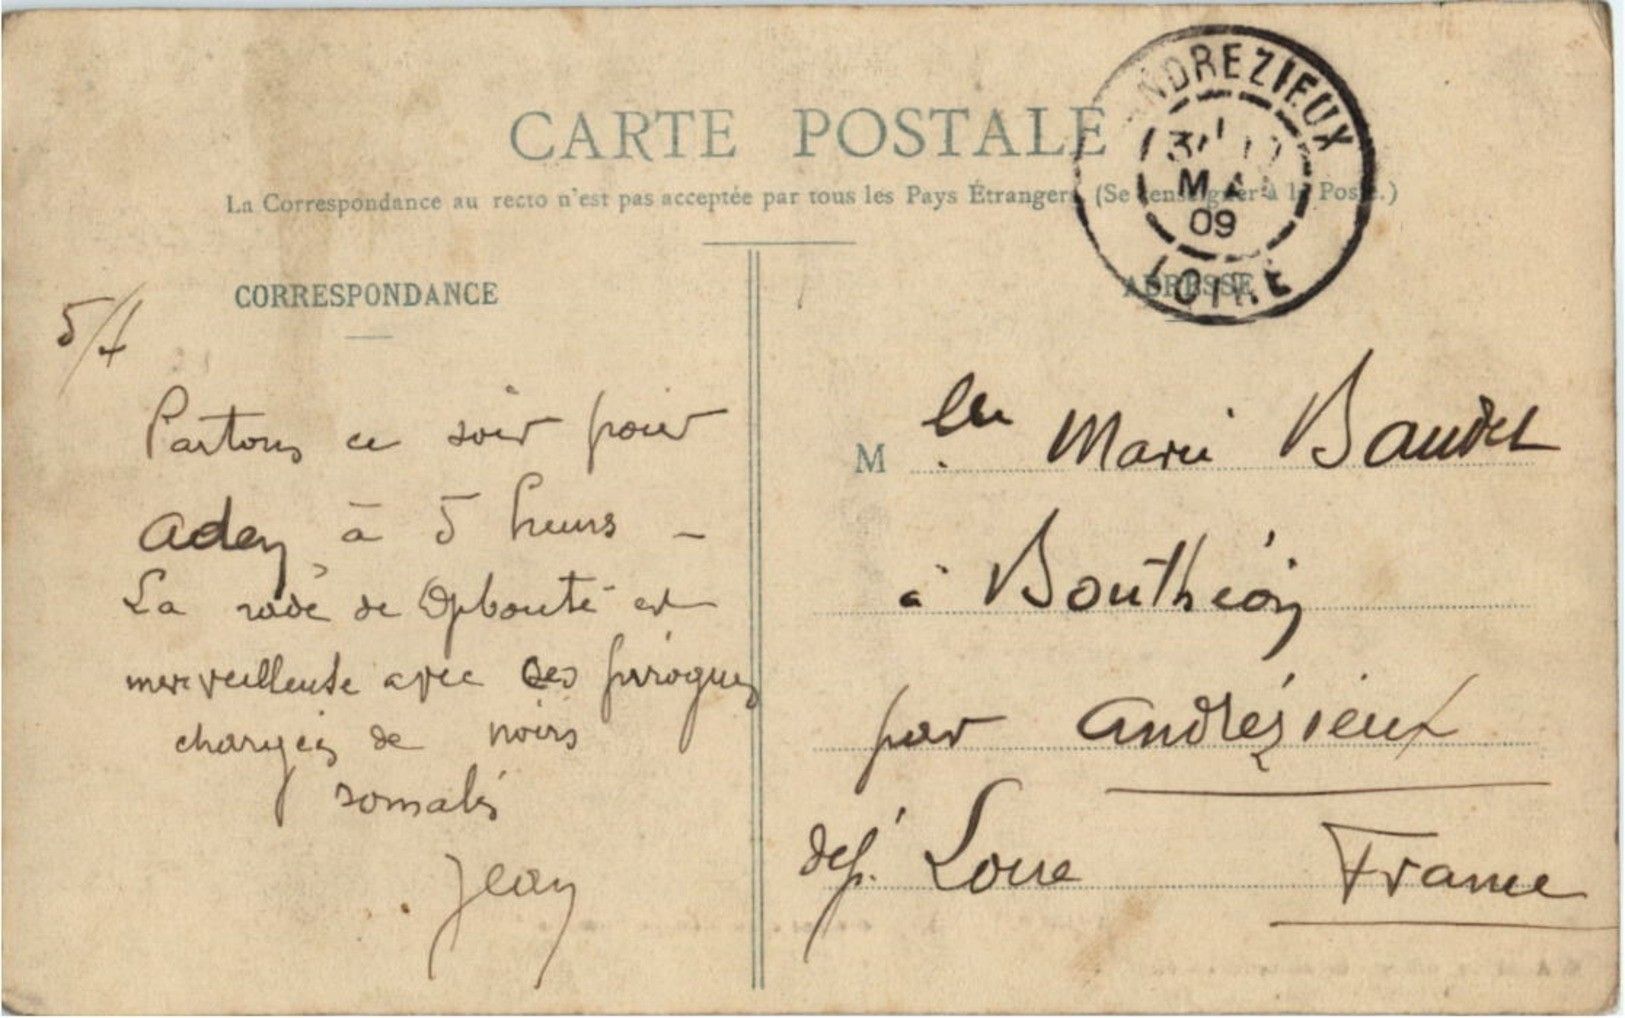 CARTE POSTALE
La Correspondance au recto n'est pas acceptée par tous les Pays Étrangers. (Se renseigner à la Poste.)
CORRESPONDANCE
Partons ce soir pour
Aden à 5 heures -
La rade de Djibouti est
merveilleuse avec ses pirogues
chargées de noirs
somalis
Jean
ADRESSE
Mlle Marie Baudet
à Bouthéon
par Andrézieux
dépt. Loire France
ANDREZIEUX
09
LOIRE